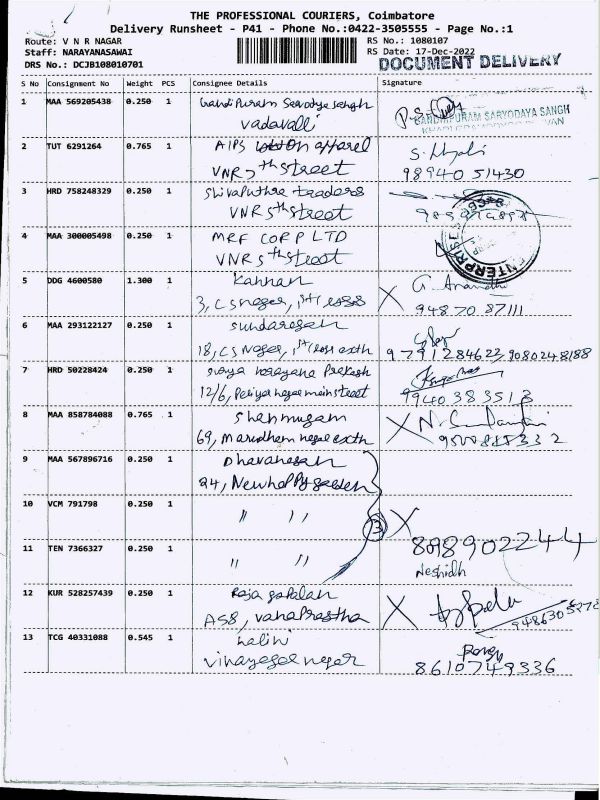 THE PROFESSIONAL COURIERS, Coimbatore
Delivery Runsheet - P41 - Phone No.:0422-3505555 - Page No.:1
Route: V N R NAGAR RS No.: 1080107
Staff: NARAYANASAWAI RS Date: 17-Dec-2022
DRS No.: DCJB108010701 DOCUMENT DELIVERY
S No Consignment No Weight PCS Consignee Details Signature
1 MAA 569205438 0.250 1 Gandipuram Sarvodya sangh
GANDHIPURAM SARVODAYA SANGH
vadavalli
2 TUT 6291264 0.765 1 AIPS apparel
VNR 5th street 98940 51430
3 HRD 758248329 0.250 1 Shivaputhra traders
VNR 5th street
ENTERPRISE
4 MAA 300005498 0.250 1 MRF CORP LTD
VNR 5th street
5 DDG 4600580 1.300 1 Kannan
3, CS nagar, 1st cross 94870 87111
6 MAA 293122127 0.250 1 Sundaresan
18, CS Nagar, 1st cross extn 9791284623, 9080248188
7 HRD 50228424 0.250 1 Surya narayana Prakash
12/6, Periyar nagar main street 9940383513
8 MAA 858784088 0.765 1 Shanmugam
69, Marudham nagar extn
9 MAA 567896716 0.250 1 Dhavanesan
24, New happy garden
10 VCM 791798 0.250 1 " "
3
11 TEN 7366327 0.250 1 " " 8098902244
Neshidh
12 KUR 528257439 0.250 1 Raja gopalan
A58, vanaprastha
13 TCG 40331088 0.545 1 nalini
vinayagar nagar 8610749336